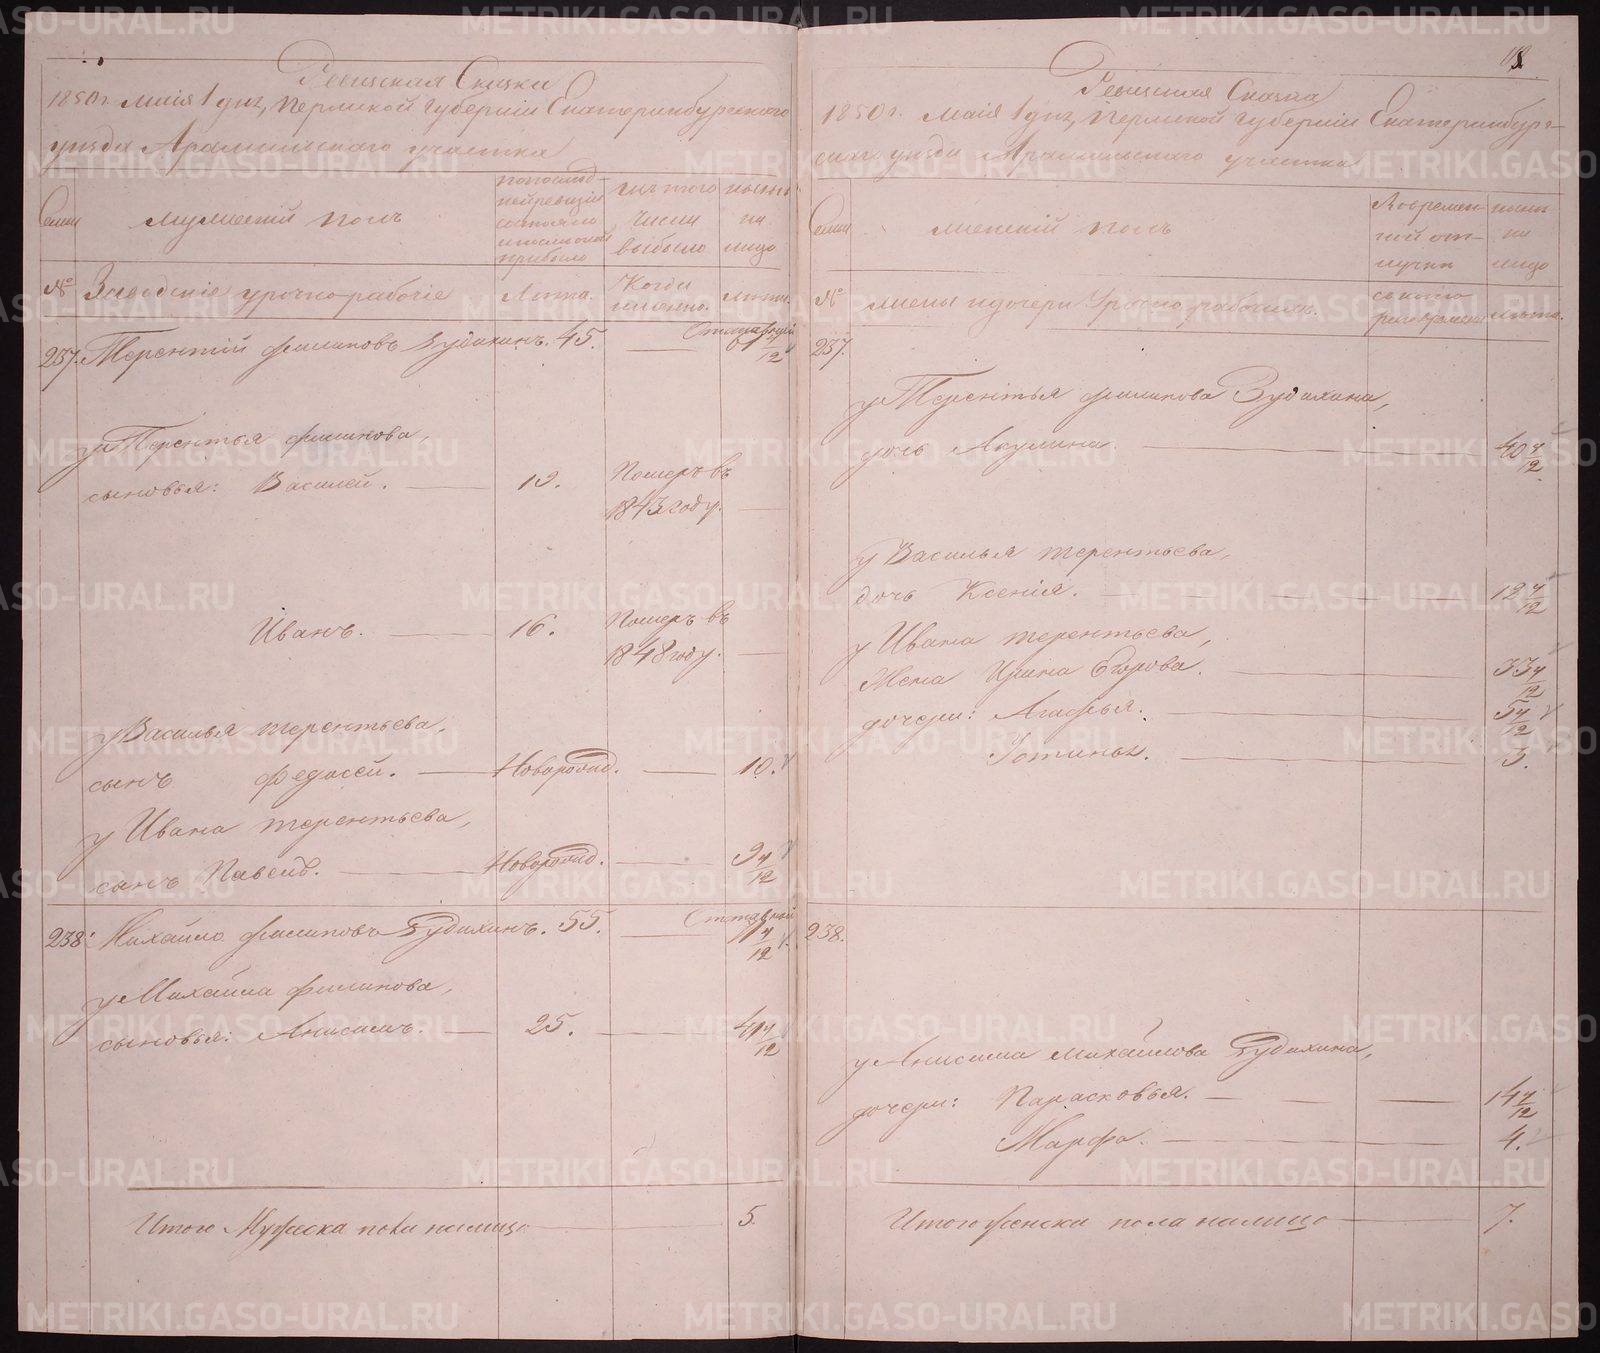 Ревизская Сказка
1850 г. маія 1 дня, Пермской Губерніи Екатеринбургского
уезда Арамильского участка
Семьи
мужеский полъ
по последней ревизіи состояло и после оной прибыло
изъ того числа выбыло
ныне на лицо
№
Заводскіе урочно-рабочіе
Лета.
Когда именно.
лета.
237. Терентій филиповъ Зудихинъ. 45. Отставной 61 4/12
у Терентья филипова,
сыновья: Василей. 19. Померъ въ
1843 году.
Иванъ. 16. Померъ въ
1848 году.
у Василья терентьева,
сынъ федосей. Новорожд. 10.
у Ивана терентьева,
сынъ Павелъ. Новорожд. 9 4/12
238. Михайло филиповъ Зудихинъ. 55. Отставной 71 4/12
у Михайла филипова,
сыновья: Анисимъ. 25. 41 4/12
Итого Мужеска пола налицо 5.
Ревизская Сказка
1850 г. маія 1 дня, Пермской Губерніи Екатеринбург-
ского уезда Арамильского участка
Семьи
женскій полъ
Во временной отлучке
ныне на лицо
№
жены и дочери Урочно рабочихъ.
с которого времени
лета.
237.
у Терентья филипова Зудихина,
дочь Акулина. 40 4/12
у Василья терентьева,
дочь Ксенія. 12 4/12
у Ивана терентьева,
Жена Ирина Егорова. 33 4/12
дочери: Агафья. 5 4/12
Устинья. 3.
238.
у Анисима михайлова Зудихина,
дочери: Парасковья. 14 4/12
Марфа. 4.
Итого женска пола налицо 7.
METRIKI.GASO-URAL.RU